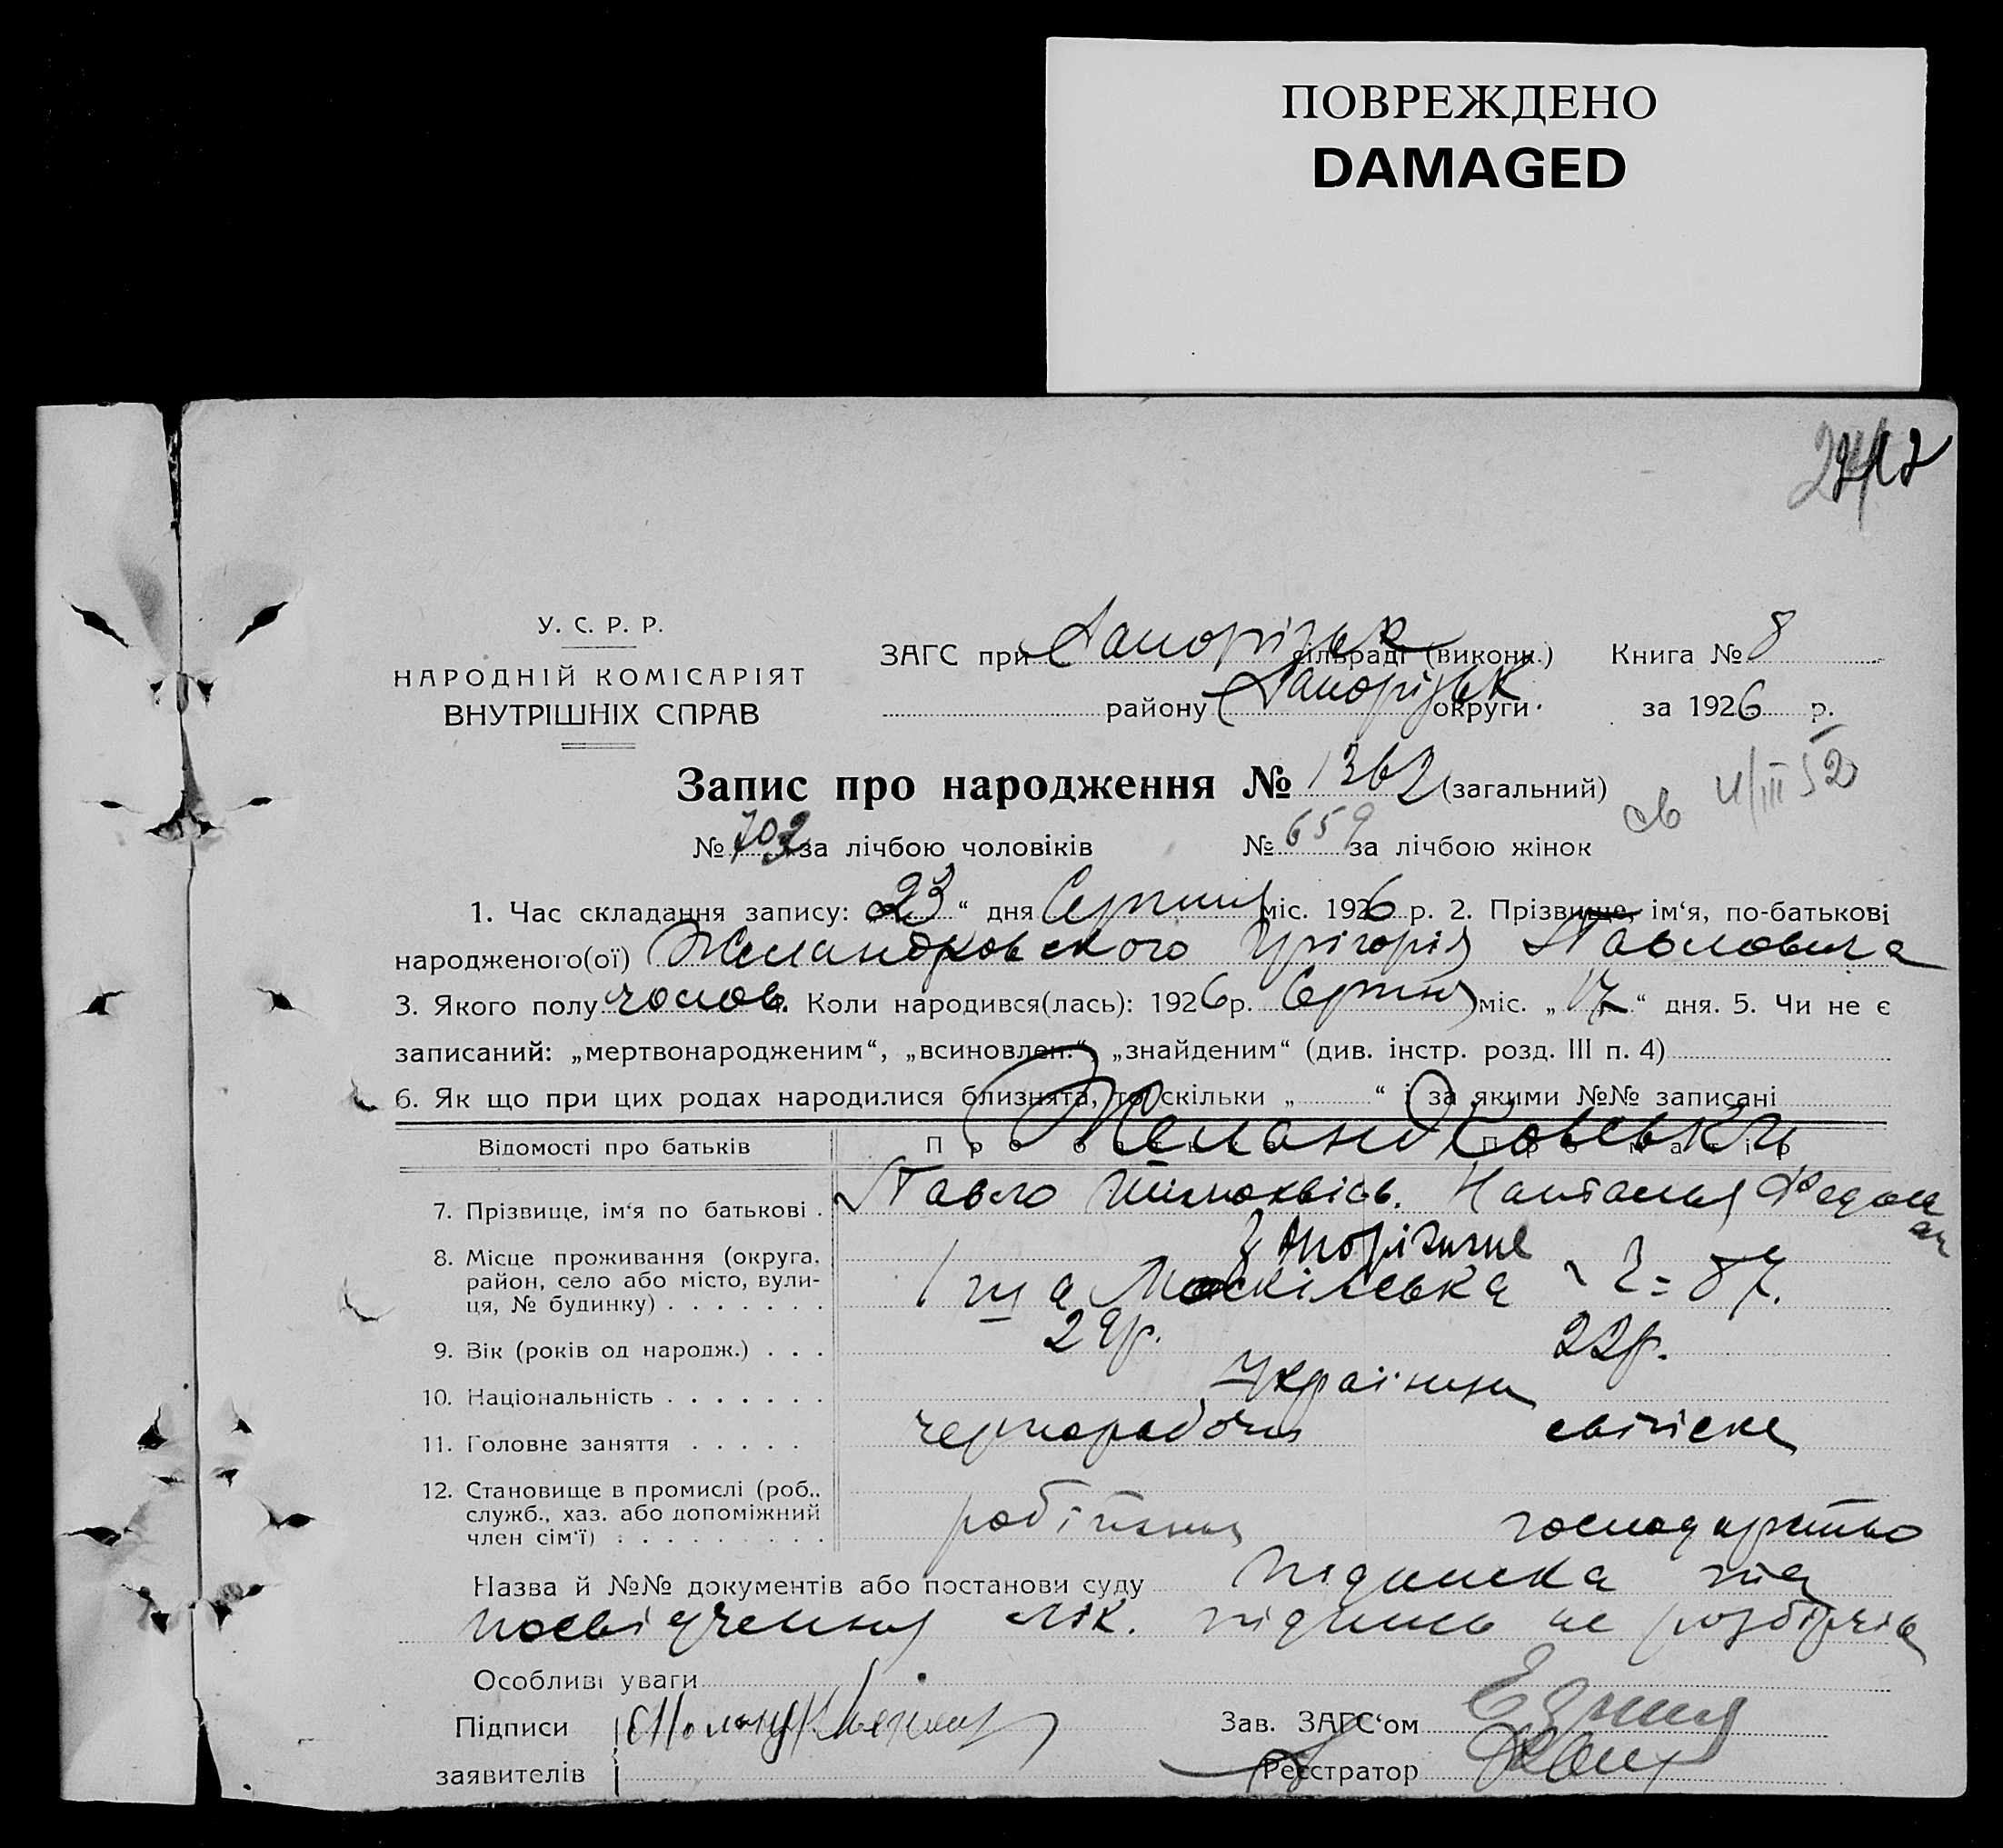 ПОВРЕЖДЕНО
DAMAGED
У. С. Р. Р.
НАРОДНІЙ КОМІСАРІЯТ
ВНУТРІШНІХ СПРАВ
ЗАГС при Запорізьк сільраді (викони.) Книга № 8
району Запорізьк округи за 1926 р.
Запис про народження № 1362 (загальний)
№ 702 за лічбою чоловіків № 659 за лічбою жінок
1. Час складання запису: „23“ дня Серпня міс. 1926 р. 2. Прізвище, ім‘я, по-батькові
народженого(ої) Григорія Павловича
3. Якого полу чолов. Коли народився(лась): 1926 р. Серпня міс. „17“ дня. 5. Чи не є
записаний: „мертвонародженим“, „всиновлен.“, „знайденим“ (див. інстр. розд. III п. 4)
6. Як що при цих родах народилися близнята, то скільки „ “ і за якими №№ записані
Відомості про батьків Про батька Про матір
7. Прізвище, ім‘я по батькові . Павло Наталія
8. Місце проживання (округа, район, село або місто, вули-ця, № будинку) . . . . . . . 87.
9. Вік (років од народж.) . . . 29р. 22р.
10. Національність . . . . . . . Українци
11. Головне заняття . . . . . чернорабочий
12. Становище в промислі (роб., служб., хаз. або допоміжний член сім‘ї) . . . . . . . . . робітник господарство
Назва й №№ документів або постанови суду підписка та
посвідчення лік. підпись не розбірчів
Особливі уваги
Підписи Зав. ЗАГС‘ом
заявителів Реєстратор